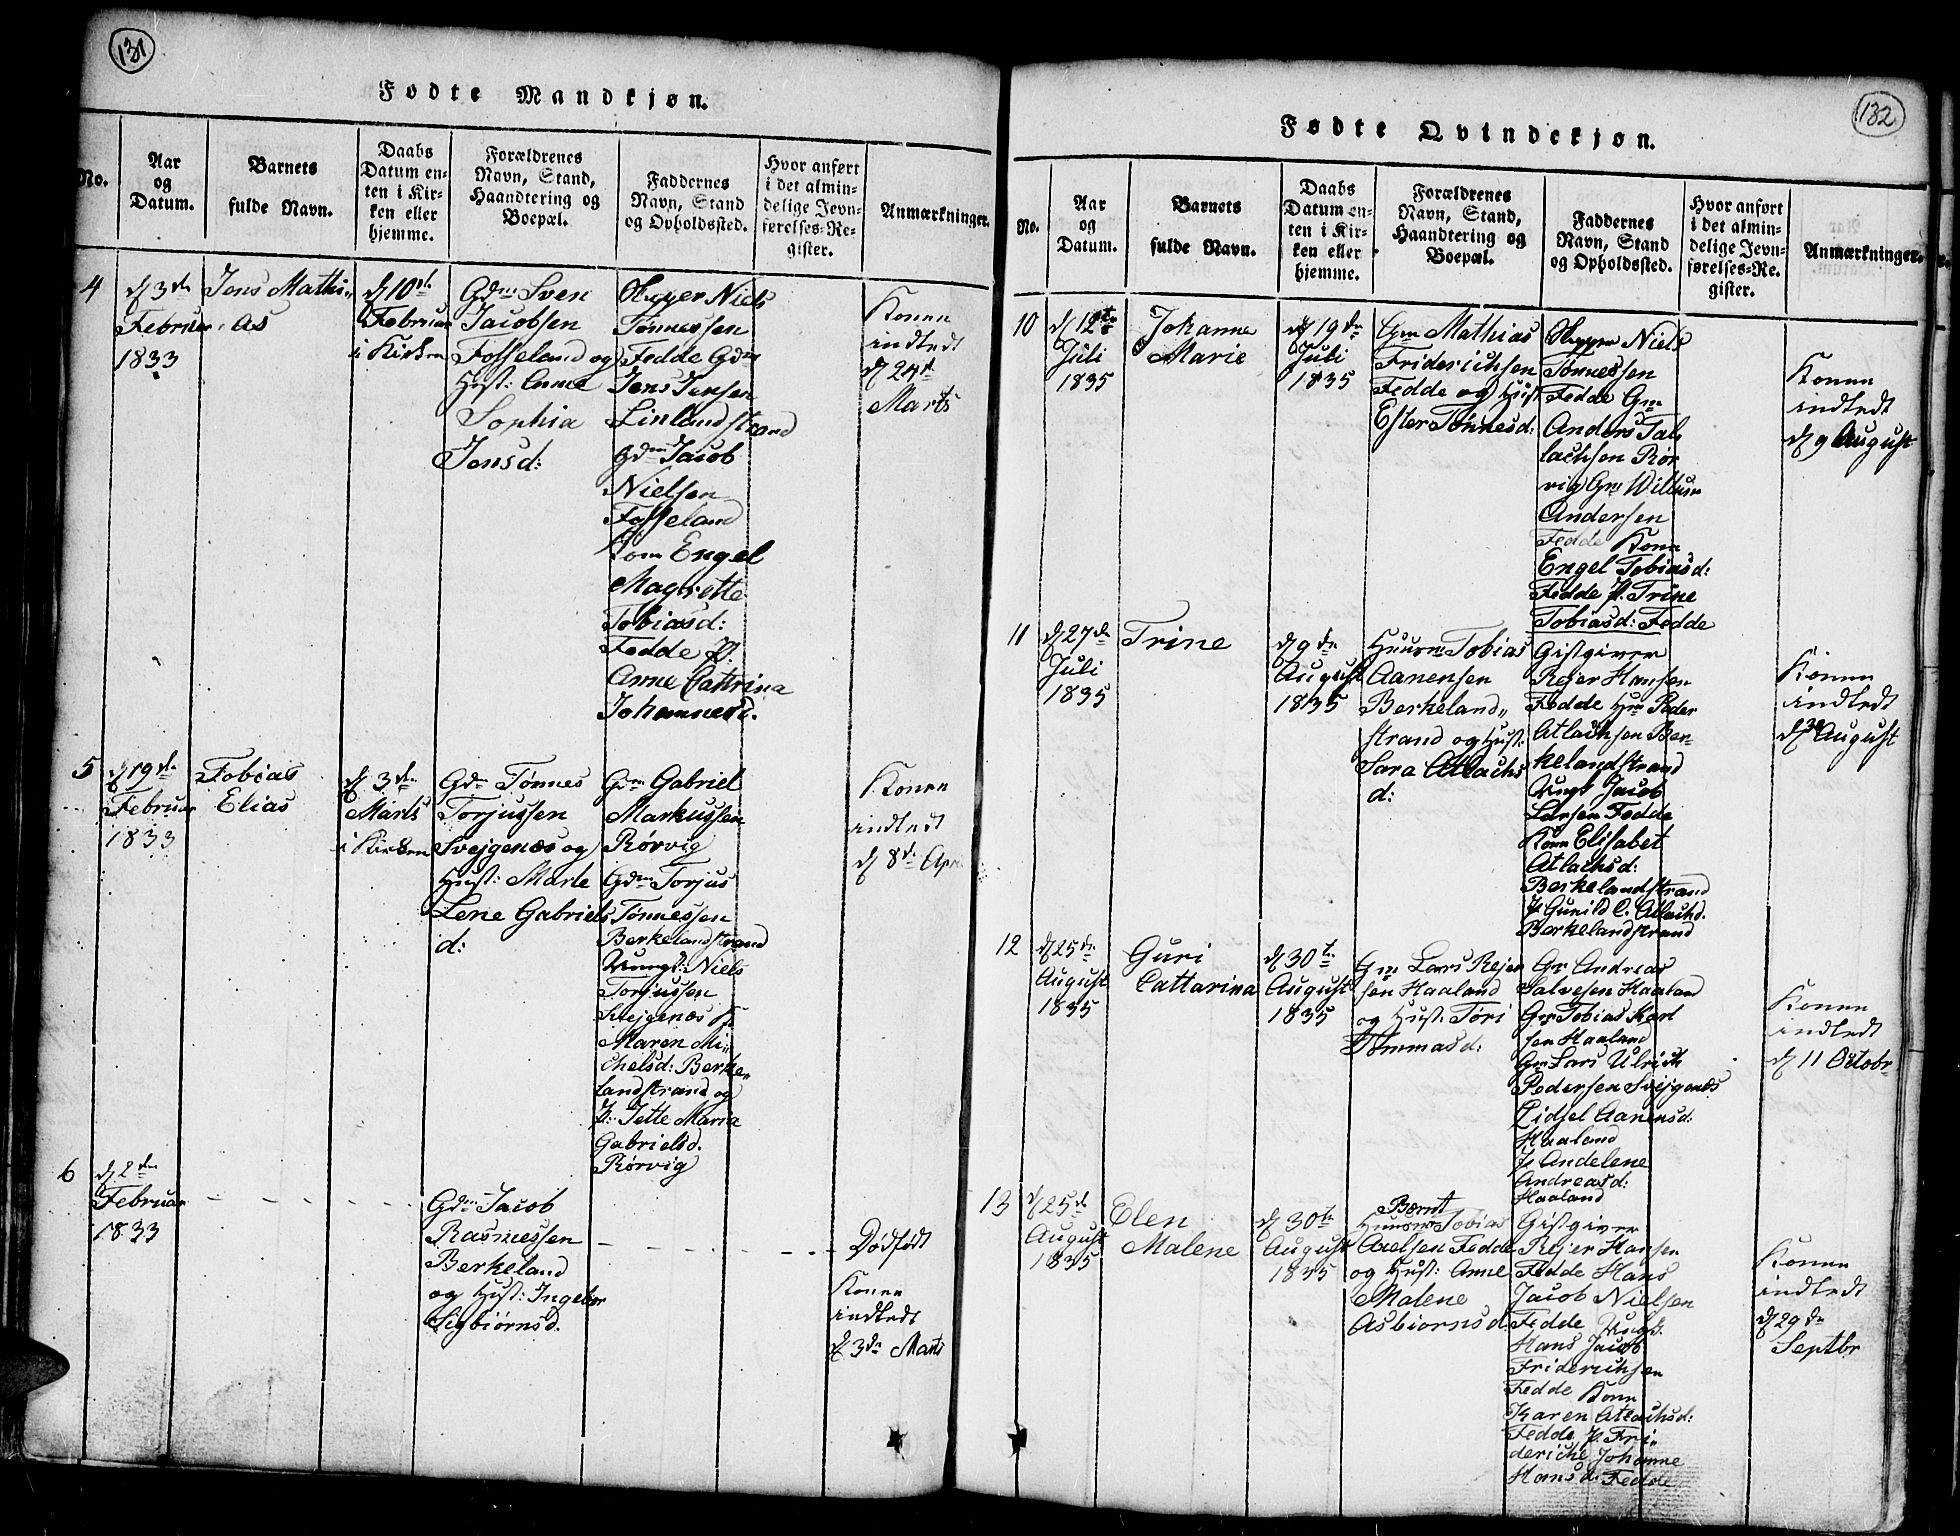 131
Fødte Mandkjøn.
No.
Aar
og
Datum.
Barnets
fulde Navn.
Daabs
Datum en-
ten i Kir-
ken eller
hjemme.
Forældrenes
Navn, Stand,
Haandtering og
Boepæl.
Faddernes
Navn, Stand
og Opholdssted.
Hvor anført
i det almin-
delige Jevn-
førelses-Re-
gister.
Anmærkninger.
4
d 3de
Februar
1833
Jens Mathi„
as
d 10de
Februar
i Kirken
Gdm Sven
Jacobsen
Fosseland og
Hust: Anne
Sophia
Jensd:
Niels
Tønnessen
Fedde Gdm
Jens Jensen
Linlandstrand
Gdm Jacob
Nielsen
Fosseland
Kone Engel
Magrette
Tobiasd:
Fedde P:
Anne Cathrina
Johannesd.
Konen
indledt
d 24de
Marts
5
d 19de
Februar
1833
Tobias
Elias
d 3de
Marts
i Kirken
Gdm Tønnes
Torjussen
Svejgenæs og
Hust: Marte
Lene Gabriels
d:
Gdm Gabriel
Markussen
Rørvig
Gdm Torjus
Tønnessen
Berkelandstrand
Ungk: Niels
Torjussen
Svejgenæs K:
Maren Mi„
chelsd: Berke„
landstrand og
P: Jette Maria
Gabrielsd.
Rørvig
Konen
indledt
d 8de Apr
6
d 2de
Februar
1833
Gdm Jacob
Rasmussen
Berkeland
og Hust: Ingebor
Sigbiørnsd.
Dødfødt
Konen
indledt
d 3de Marts
132
Fødte Qvindekjøn.
No.
Aar
og
Datum.
Barnets
fulde Navn.
Daabs
Datum en-
ten i Kir-
ken eller
hjemme.
Forældrenes
Navn, Stand,
Haandtering og
Boepæl.
Faddernes
Navn, Stand
og Opholdssted.
Hvor anført
i det almin-
delige Jevn-
førelses-Re-
gister.
Anmærkninger.
10
d 12te
Juli
1835
Johanne
Marie
d 19de
Juli
1835
Gm Mathias
Friderichsen
Fedde og Hust
Ester Tønnesd:
Niels
Tønnessen
Fedde Gm
Anders Tal„
lachsen Rør
vig Gm Willum
Andersen
Fedde Kone
Engel Tobiasd:
Fedde P: Trine
Tobiasd: Fedde
Konen
indledt
d 9 August
11
d 27de
Juli
1835
Trine
d 9de
August
1835
Huusm Tobias
Aanensen
Berkeland„
strand og Hust:
Sara Atlachs
d:
Gistgiver
Rejer Hansen
Fedde Hm Peder
Atlachsen Ber-
kelandstrand
Ungk Jacob
Larsen Fedde
Kone Elisabet
Atlachsd:
Berkelandstrand
P Gunild C. Atlachd.
Berkelandstrand
Konen
indledt
d 30 August
12
d 25de
August
1835
Guri
Cattarina
d 30te
August
1835
Gm Lars Rejer
sen Haaland
og Hust: Tøri
Tommasd:
Gm Andreas
Salvesen Haaland
Gm Tobias Karl
sen Haaland
Gm Lars Ulrich
Pedersen Svejgenæs
Eidsel Aanensd:
Haaland
P Andelene
Andreasd:
Haaland
Konen
indledt
d 11 Octobr
13
d 25de
August
1835
Elen
Malene
d 30te
August
1835
Bernt
Huusm Tobias
Axelsen Fedde
og Hust: Anne
Malene
Asbiornsd
Gistgiver
Rejer Hansen
Fedde Hans
Jacob Nielsen
Fedde Ungk.
Hans Jacob
Friderichsen
Fedde Kone
Karen Atlachsd:
Fedde P. Fri„
deriche Johanne
Hansd: Fedde
Konen
indledt
d 29de
Septbr